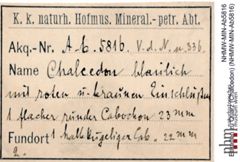 K. k. naturh. Hofmus. Mineral.-petr. Abt.
Akq.-Nr. A. b. 5816. V. d. N. u. 336.
Name Chalcedon bläulich
mit roten u. braunen Einschlüssen
1 flacher runder Cabochon 23 mm
Fundort 1 halbkugeliger Cab. 22 mm
2.
NHMW-MIN-Ab5816
(NHMW-MIN-Ab5816)